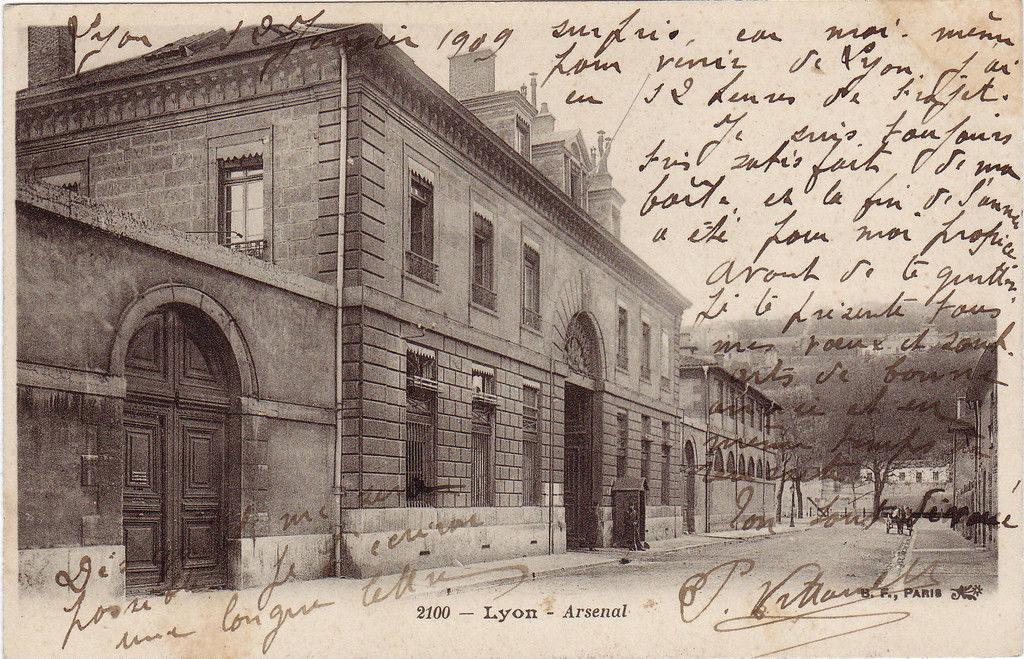 Lyon 12 Janvier 1909
surpris, car moi-même
pour venir de Lyon, j'ai
eu 12 heures de trajet.
Je suis toujours
très satisfait de ma
boîte, et la fin de l'année
a été pour moi propice
avant de te quitter
Je te présente tous
mes vœux et souh-
aits de bonne
année et en
même temps
Ton tout dévoué
Dès
possible Je
t'écrire
une longue lettre
P.
2100 — Lyon - Arsenal
B. F., PARIS